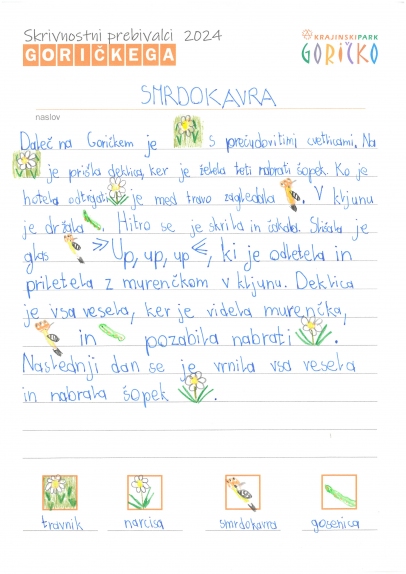 Skrivnostni prebivalci 2024
GORIČKEGA
KRAJINSKI PARK
GORIČKO
SMRDOKAVRA
naslov
Daleč na Goričkem je s prečudovitimi cvetlicami. Na
je prišla deklica, ker je želela teti nabrati šopek. Ko je
hotela odtrgati je med travo zagledala . V kljunu
je držala . Hitro se je skrila in čakala. Slišala je
glas »Up, up, up«, ki je odletela in
priletela z murenčkom v kljunu. Deklica
je vsa vesela, ker je videla murenčka,
in pozabila nabrati .
Naslednji dan se je vrnila vsa vesela
in nabrala šopek .
travnik narcisa smrdokavra gosenica